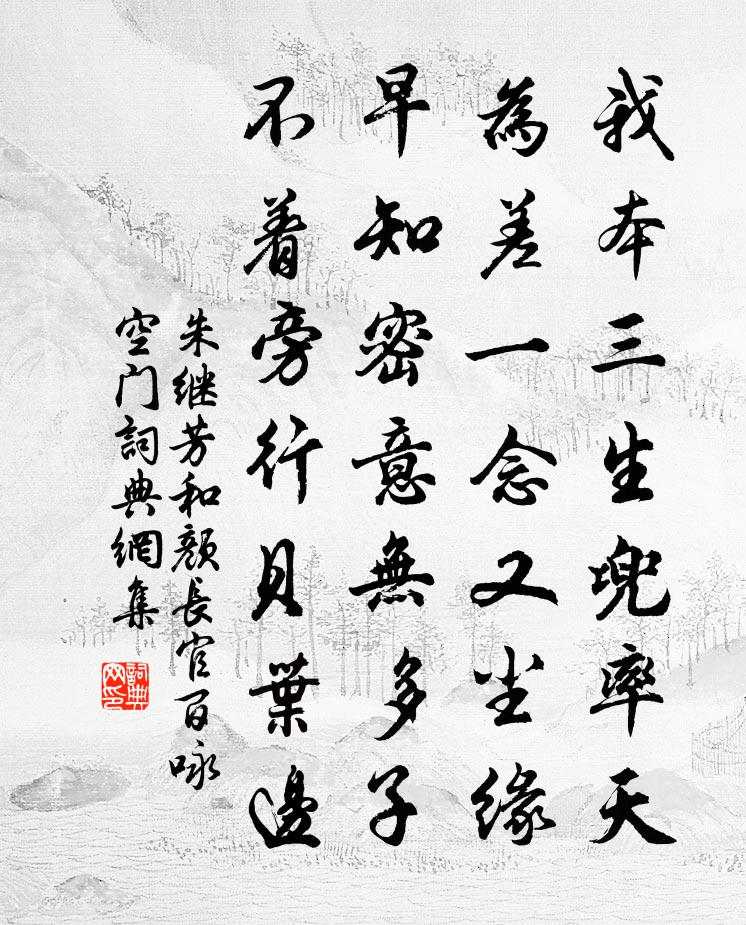 我本三生兜率天
為差一念又尘緣
早知密意無多子
不着旁行貝葉邊
朱继芳和颜長官百咏
空门詞典網集
詞典
网印